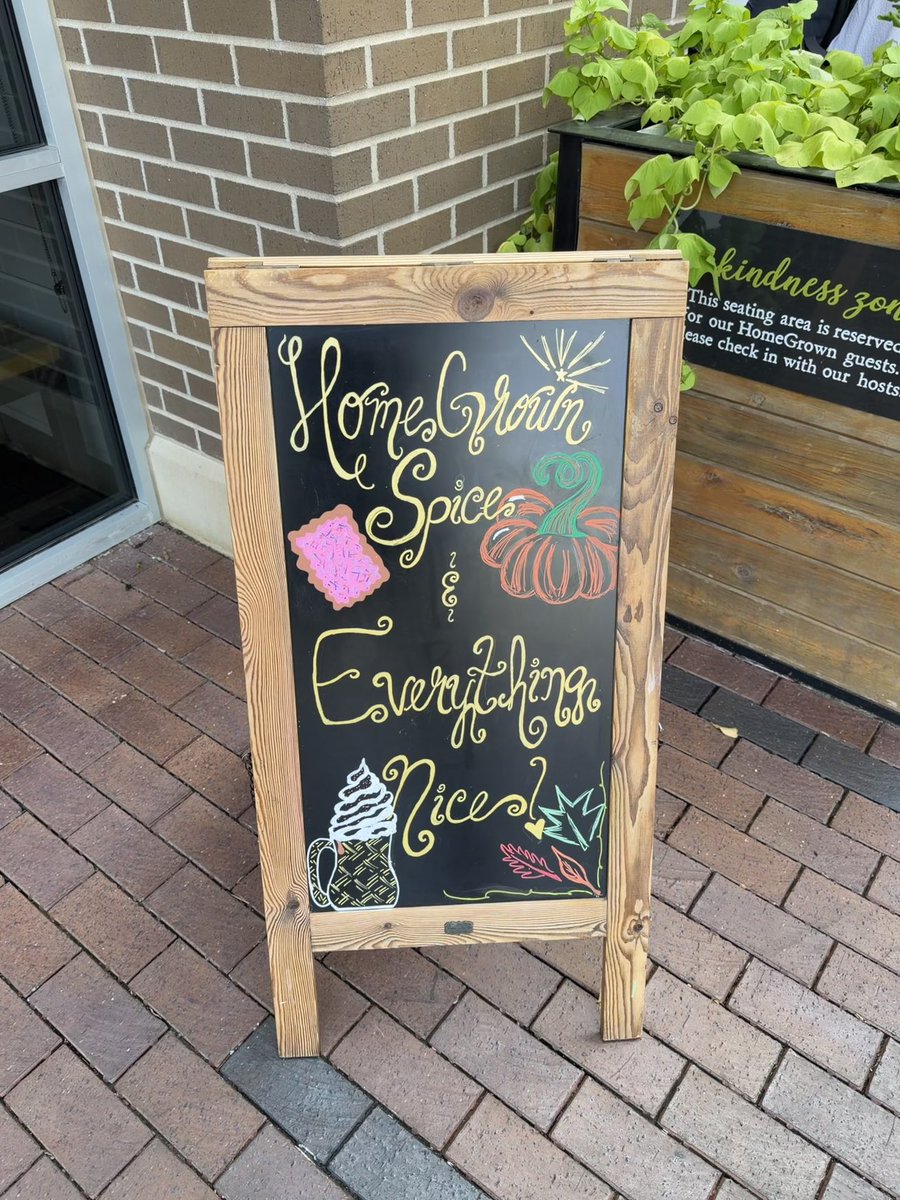 HomeGrown
Spice
&
Everything
Nice!
kindness zon
This seating area is reserved
for our HomeGrown guests.
ease check in with our hosts.